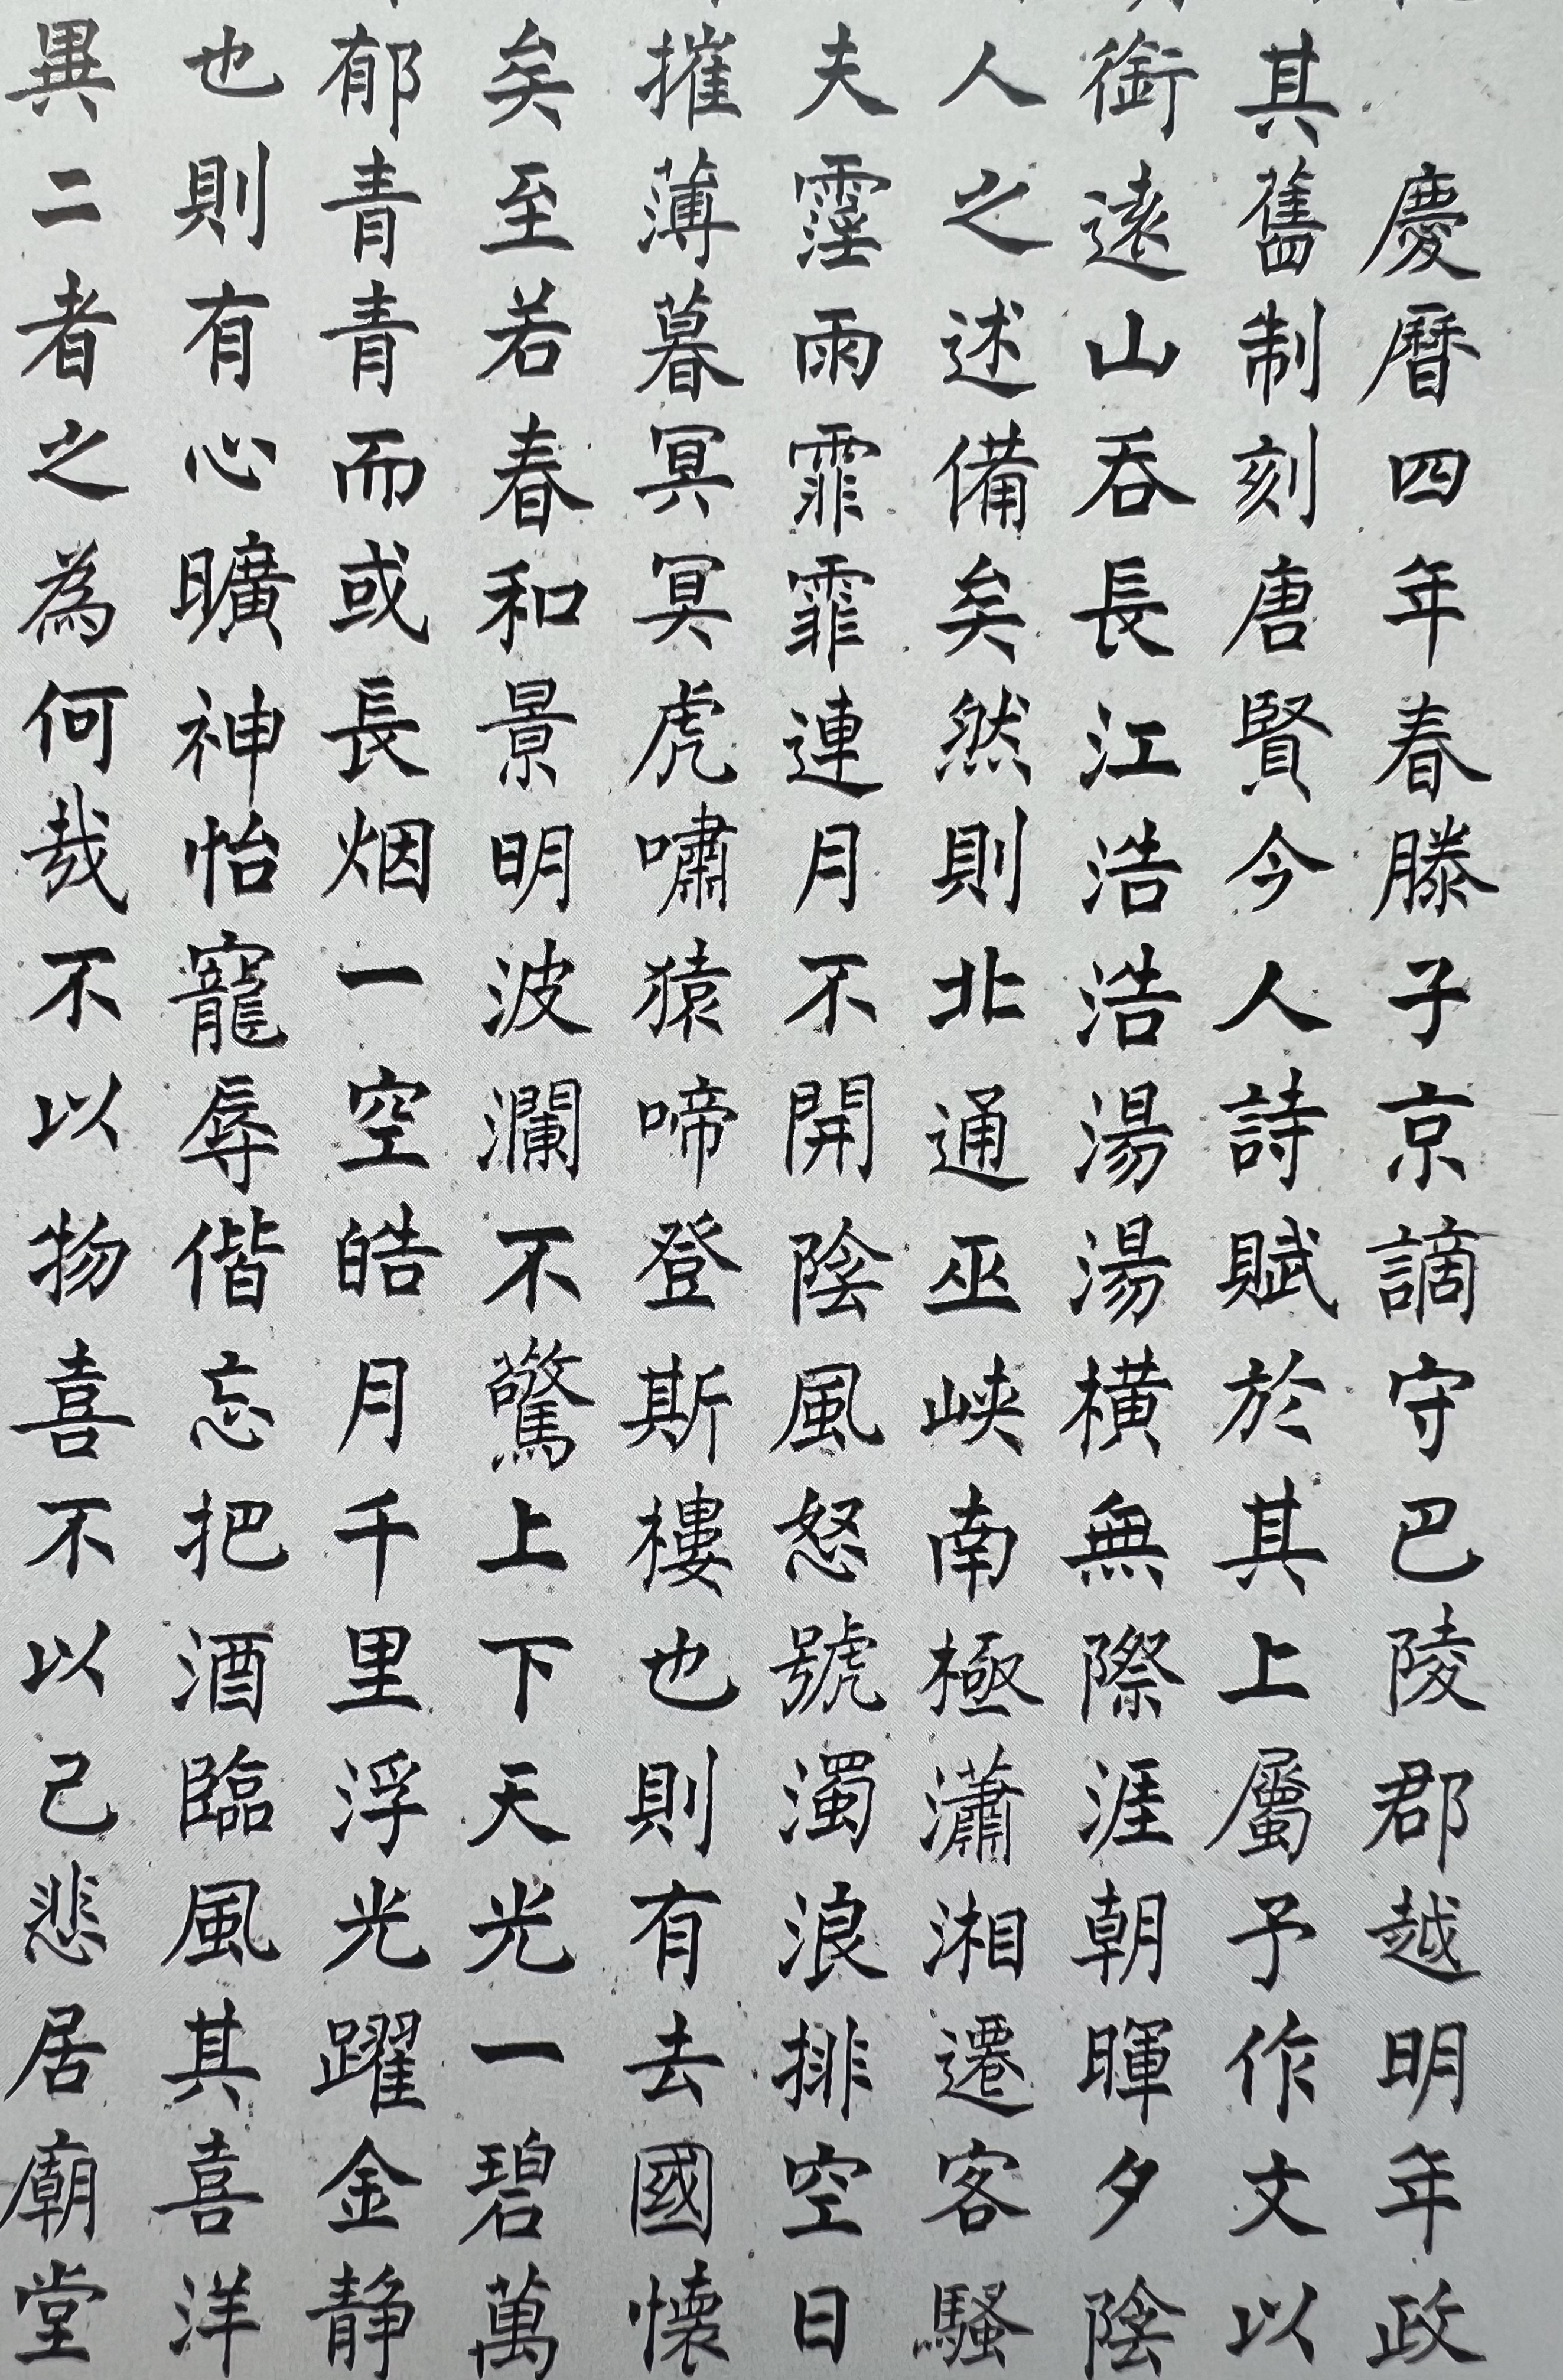 慶曆四年春滕子京謫守巴陵郡越明年政
其舊制刻唐賢今人詩賦於其上屬予作文以
銜遠山吞長江浩浩湯湯橫無際涯朝暉夕陰
人之述備矣然則北通巫峽南極瀟湘遷客騷
夫霪雨霏霏連月不開陰風怒號濁浪排空日
摧薄暮冥冥虎嘯猿啼登斯樓也則有去國懷
矣至若春和景明波瀾不驚上下天光一碧萬
郁青青而或長烟一空皓月千里浮光躍金静
也則有心曠神怡寵辱偕忘把酒臨風其喜洋
異二者之為何哉不以物喜不以己悲居廟堂